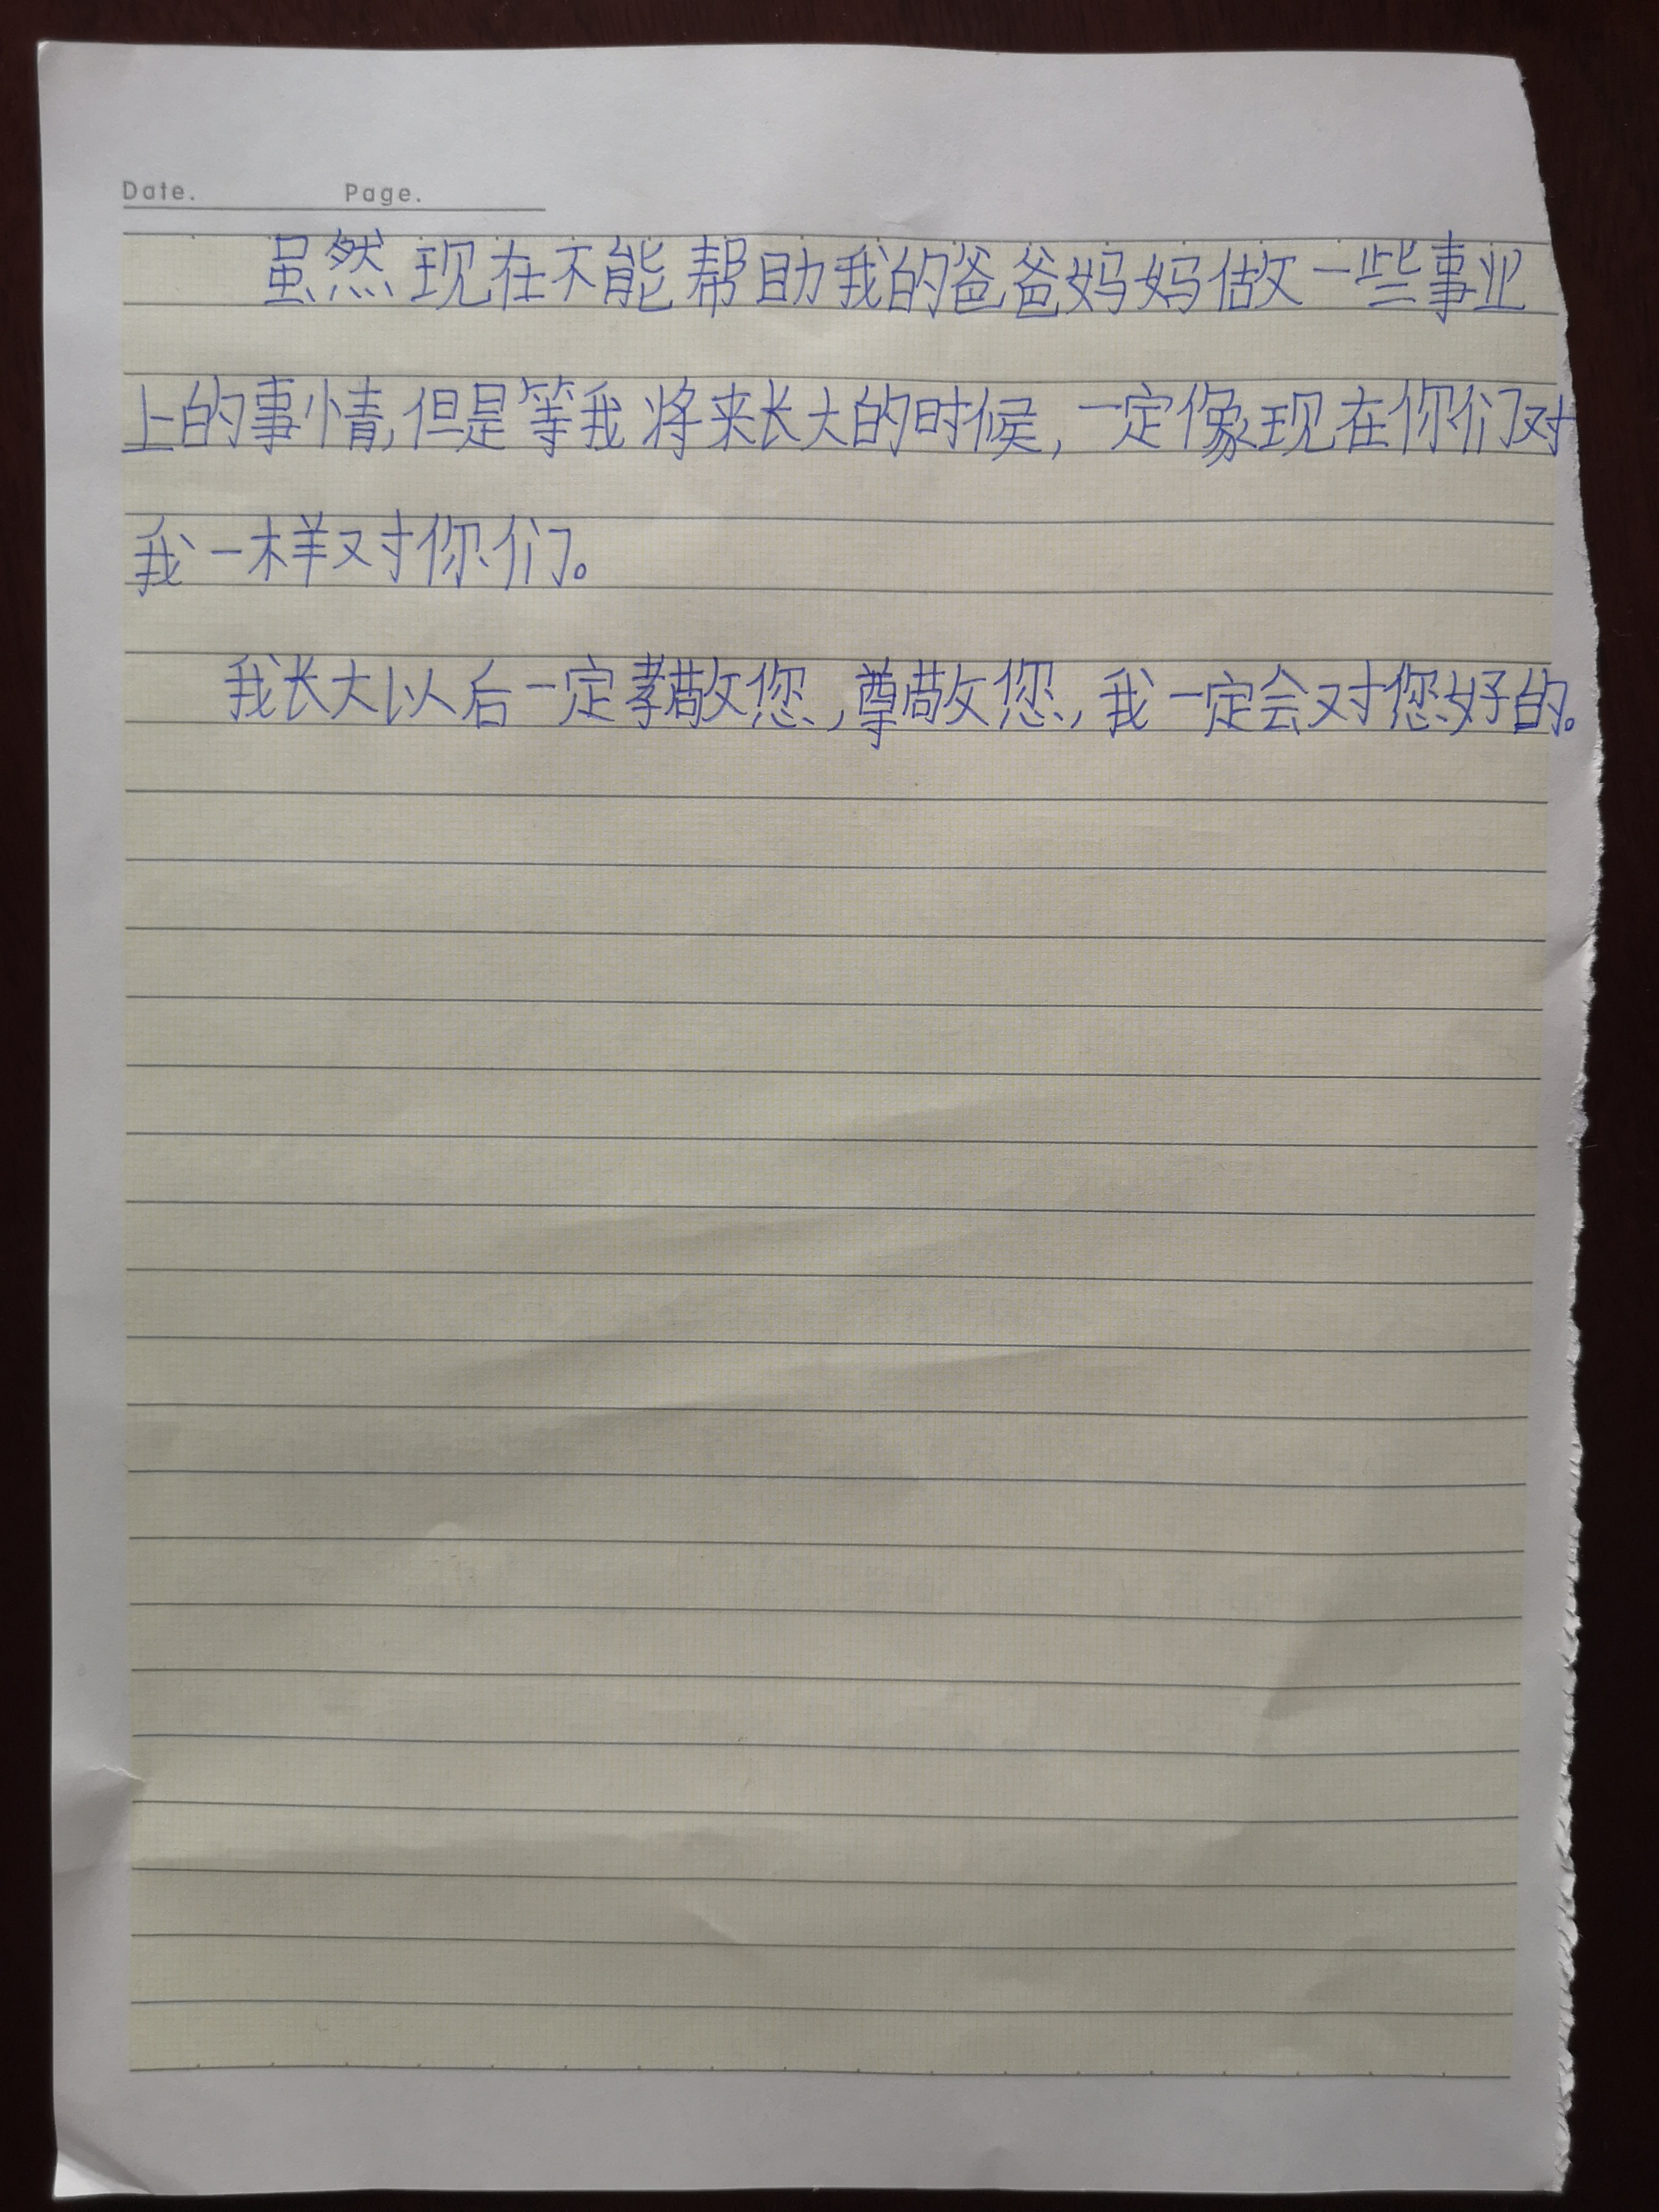 Date. Page.
虽然现在不能帮助我的爸爸妈妈做一些事业
上的事情,但是等我将来长大的时候,一定像现在你们对
我一样对你们。
我长大以后一定孝敬您,尊敬您,我一定会对您好的。